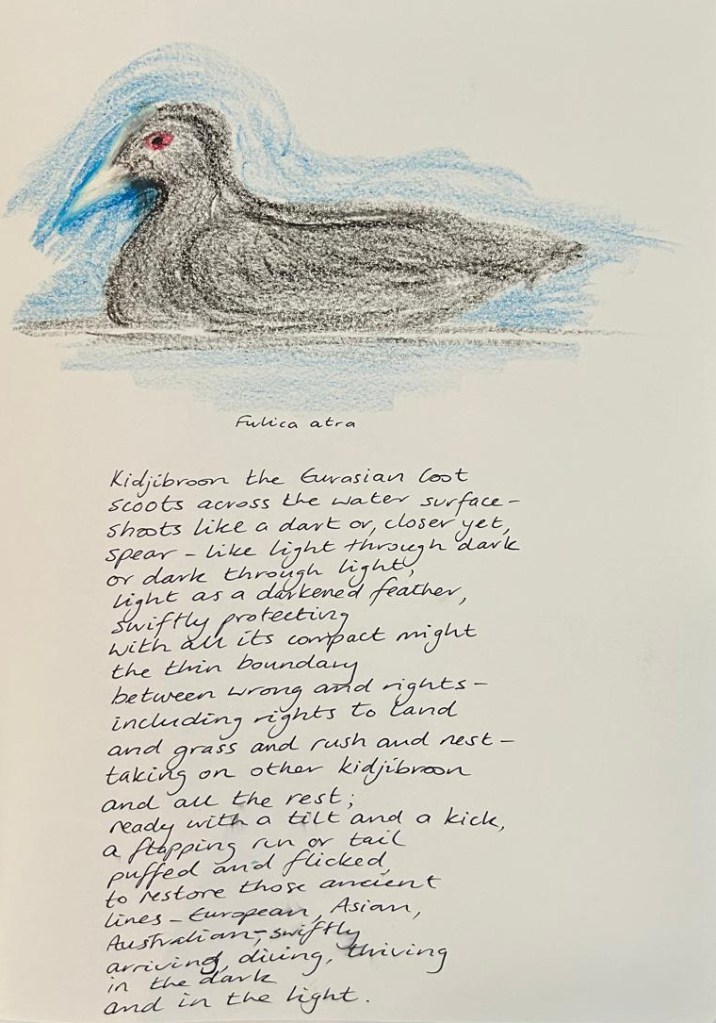 Fulica atra
Kidjibroon the Eurasian Coot
scoots across the water surface -
shoots like a dart or, closer yet,
spear - like light through dark
or dark through light,
light as a darkened feather,
swiftly protecting
with all its compact might
the thin boundary
between wrong and rights -
including rights to land
and grass and rush and nest -
taking on other kidjibroon
and all the rest;
ready with a tilt and a kick,
a flapping run or tail
puffed and flicked,
to restore those ancient
lines - European, Asian,
Australian -, swiftly
arriving, diving, thriving
in the dark
and in the light.